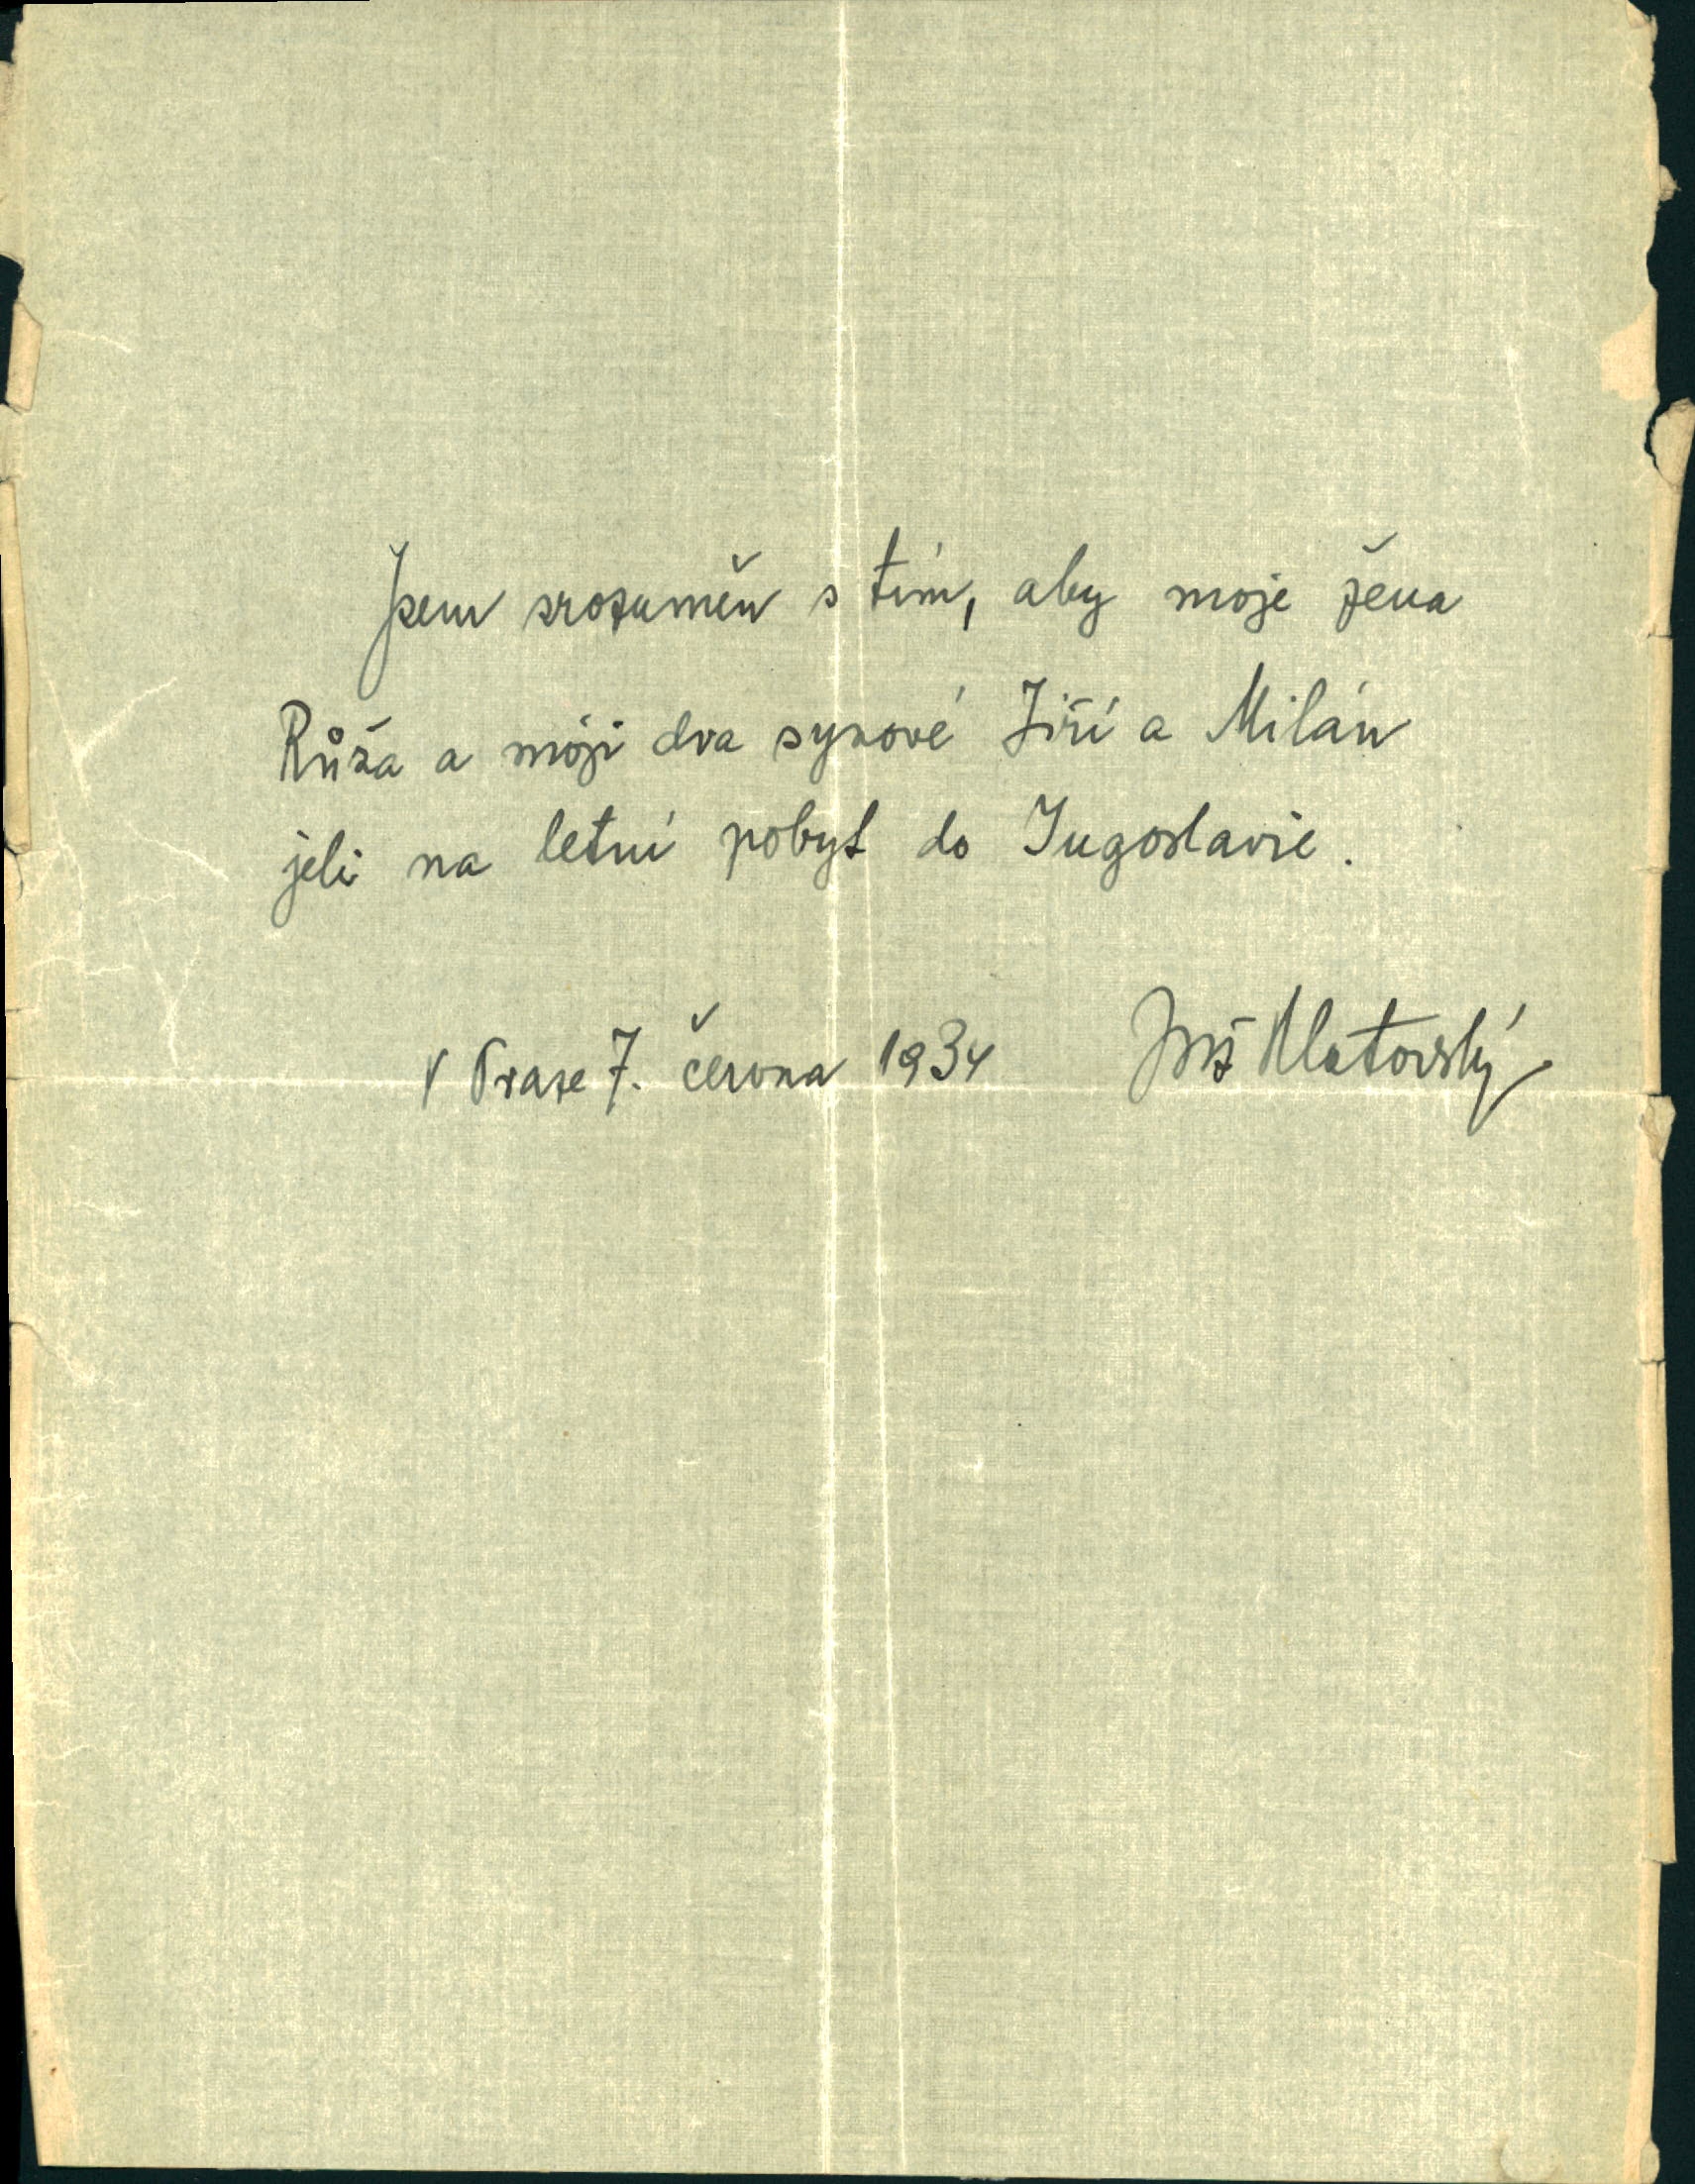 Jsem srozuměn s tím, aby moje žena
Růža a moji dva synové Jiří a Milán
jeli na letní pobyt do Jugoslavie.
V Praze 7. června 1934 Klatovský